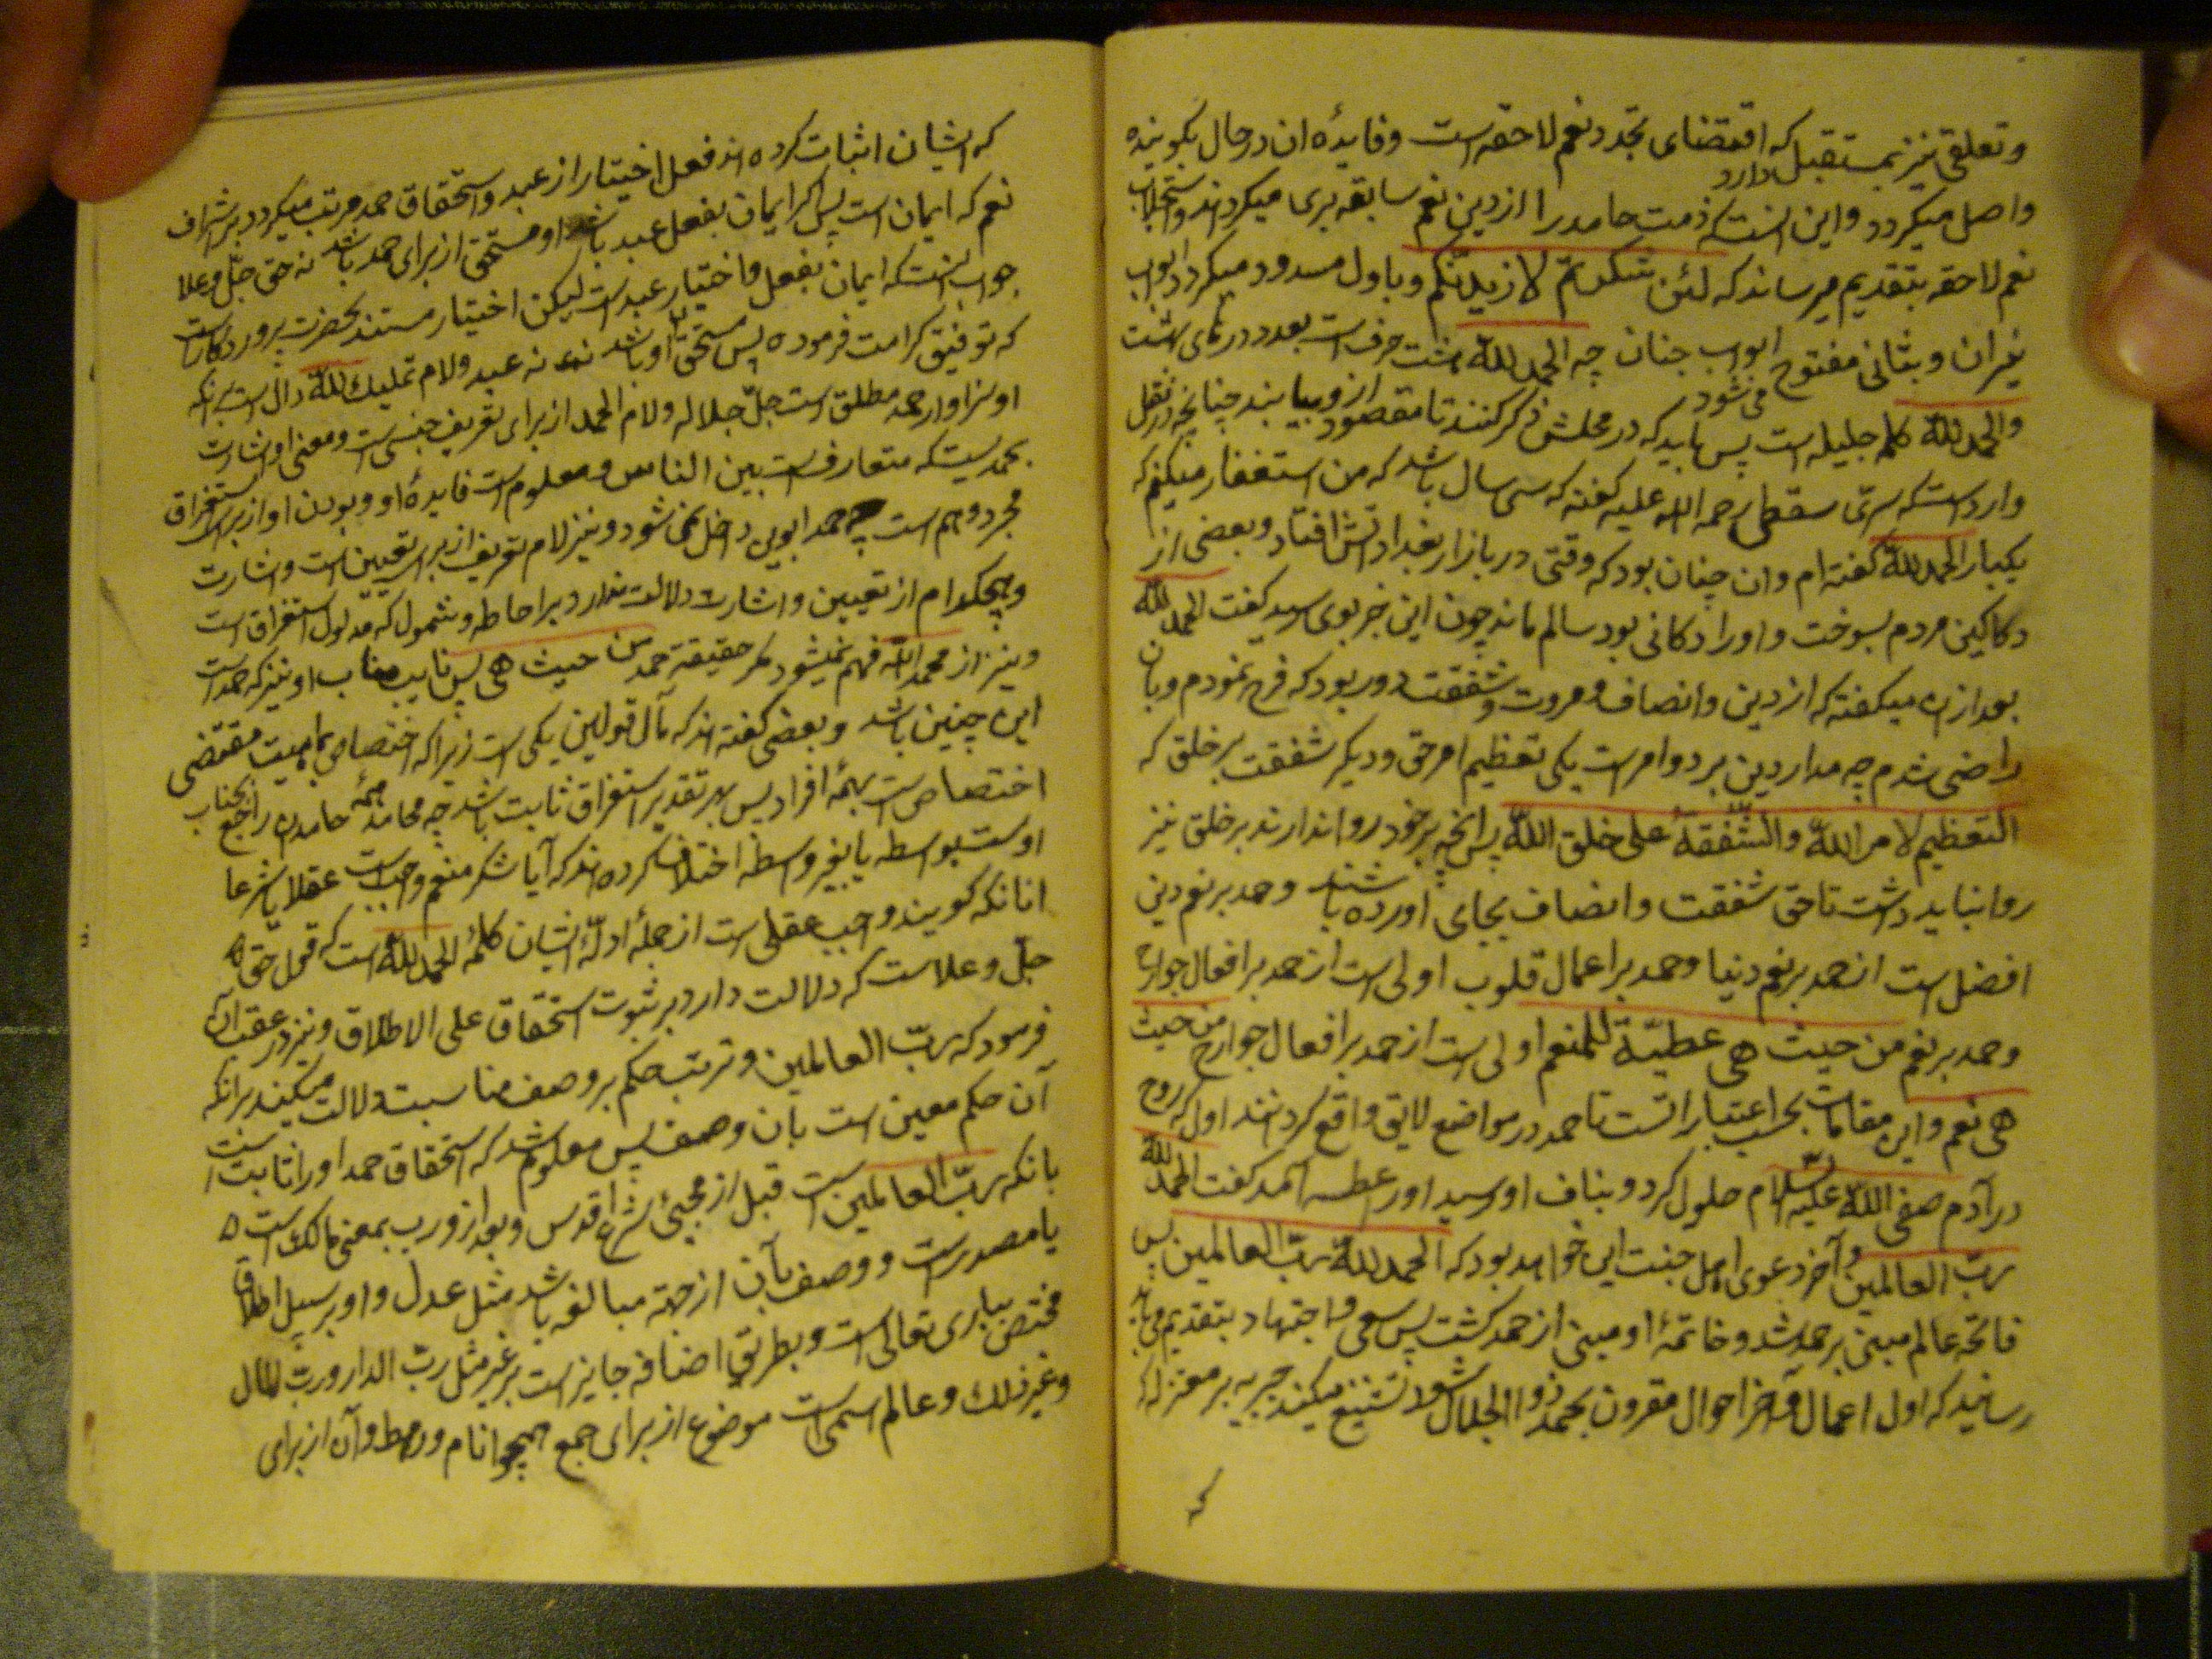 وتعلقی نیز بمستقبل دارد که اقتضای تجدد نعم لاحقه است وفایدهٔ ان در حال بکوینده
واصل میکردد واین انست که ذمت حامد را از دین نعم سابقه بری میکرداند واستجلاب
نعم لاحقه بتقدیم میرساند که لئن شکرتم لازیدنکم وباول مسدود میکردد ابواب
نیران وبثانی مفتوح می شود ابواب جنان چه الحمد لله هشت حرف است بعدد درهای بهشت
والحمد لله کلمهٔ جلیله است پس باید که در محلش ذکر کنند تا مقصود ازو بیابند چنانچه در نقل
وارد است که سری سقطی رحمه الله علیه کفته که سی سال باشد که من استغفار میکنم که
یکبار الحمد لله کفته ام وان چنان بود که وقتی در بازار بغداد اتش افتاد وبعضی از
دکاکین مردم بسوخت واورا دکانی بود سالم ماند چون این خبر بوی رسید کفت الحمد لله
بعد ازان میکفته که از دین وانصاف ومروت وشفقت دور بود که فرح نمودم وبان
راضی شدم چه مدار دین بر دو امر است یکی تعظیم امر حق ودیکر شفقت بر خلق که
التعظیم لامر الله والشفقة علی خلق الله پس انچه بر خود روا ندارند بر خلق نیز
روا نباید داشت تا حق شفقت وانصاف بجای اورده باشند وحمد بر نعم دینی
افضل است از حمد بر نعم دنیا وحمد بر اعمال قلوب اولی است از حمد بر افعال جوارح
وحمد بر نعم من حیث هی عطیّة للمنعم اولی است از حمد بر افعال جوارح من حیث
هی نعم واین مقامات بحسب اعتبار است تا حمد در مواضع لایق واقع کردانند اول که روح
در آدم صفی الله علیه السلام حلول کرد وبناف او رسید اورا عطسه آمد کفت الحمد لله
ربّ العالمین وآخر دعوی اهل جنت این خواهد بود که الحمد لله ربّ العالمین پس
فاتحهٔ عالم مبنی بر حمد شد وخاتمهٔ او مبنی از حمد کشت پس سعی واجتهاد بتقدیم می باید
رسانید که اول اعمال وآخر احوال مقرون بحمد ذو الجلال شود تشنیع میکنند جبریه بر معتزله
که
که ایشان اثبات کرده اند فعل اختیار از عبد واستحقاق حمد مرتب میکردد بر اشراف
نعم که ایمان است پس اکر ایمان بفعل عبد باشد او مستحق از برای حمد باشد نه حق جلّ وعلا
جواب انست که ایمان بفعل واختیار عبد است لیکن اختیار مستند بحضرت پروردکار است
که توفیق کرامت فرموده پس مستحق او باشد نه عبد ولام تملیک لله دال است بر انکه
او سزاوار حمد مطلق است جلّ جلاله ولام الحمد از برای تعریف جنس است ومعنی او اشارت
بحمدیست که متعارف است بین الناس ومعلوم است فایدهٔ او وبودن او از برای استغراق
مجرد وهم است چه حمد ابوین داخل نمی شود ونیز لام تعریف از برای تعیین است واشارت
وهیچکدام از تعیین واشارت دلالت ندارد بر احاطه وشمول که مدلول استغراق است
ونیز از محمد الله فهم نمیشود مکر حقیقة حمد من حیث هی پس نایب مناب او نیز که حمد است
این چنین باشد وبعضی کفته اند که مآل قولین یکی است زیرا که اختصاص بماهیت مقتضی
اختصاص است بهمهٔ افراد پس بهر تقدیر استغراق ثابت باشد چه محامد همهٔ حامدان راجع بجناب
اوست بواسطه یا بغیر واسطه اختلاف کرده اند که آیا شکر منعم واجب است عقلا یا شرعا
انانکه کویند وجب عقلی است از جملهٔ ادلّهٔ ایشان کلمهٔ الحمد لله است که قول حق
جلّ وعلاست که دلالت دارد بر ثبوت استحقاق علی الاطلاق ونیز در عقب آن
فرمود که ربّ العالمین وترتب حکم بر وصف مناسبت دلالت میکند بر انکه
آن حکم معین است بان وصف پس معلوم شد که استحقاق حمد اورا ثابت است
بانکه ربّ العالمین است قبل از مجیئ شرع اقدس وبعد ازو ورب بمعنی مالک است
یا مصدر است ووصف بآن از جهة مبالغه باشد مثل عدل واو بر سبیل اطلاق
مختص بباری تعالی است وبطریق اضافه جایز است بر غیر مثل ربّ الدار وربّ المال
وغیر ذلک وعالم اسمی است موضوع از برای جمع همچو انام ورهط وآن از برای